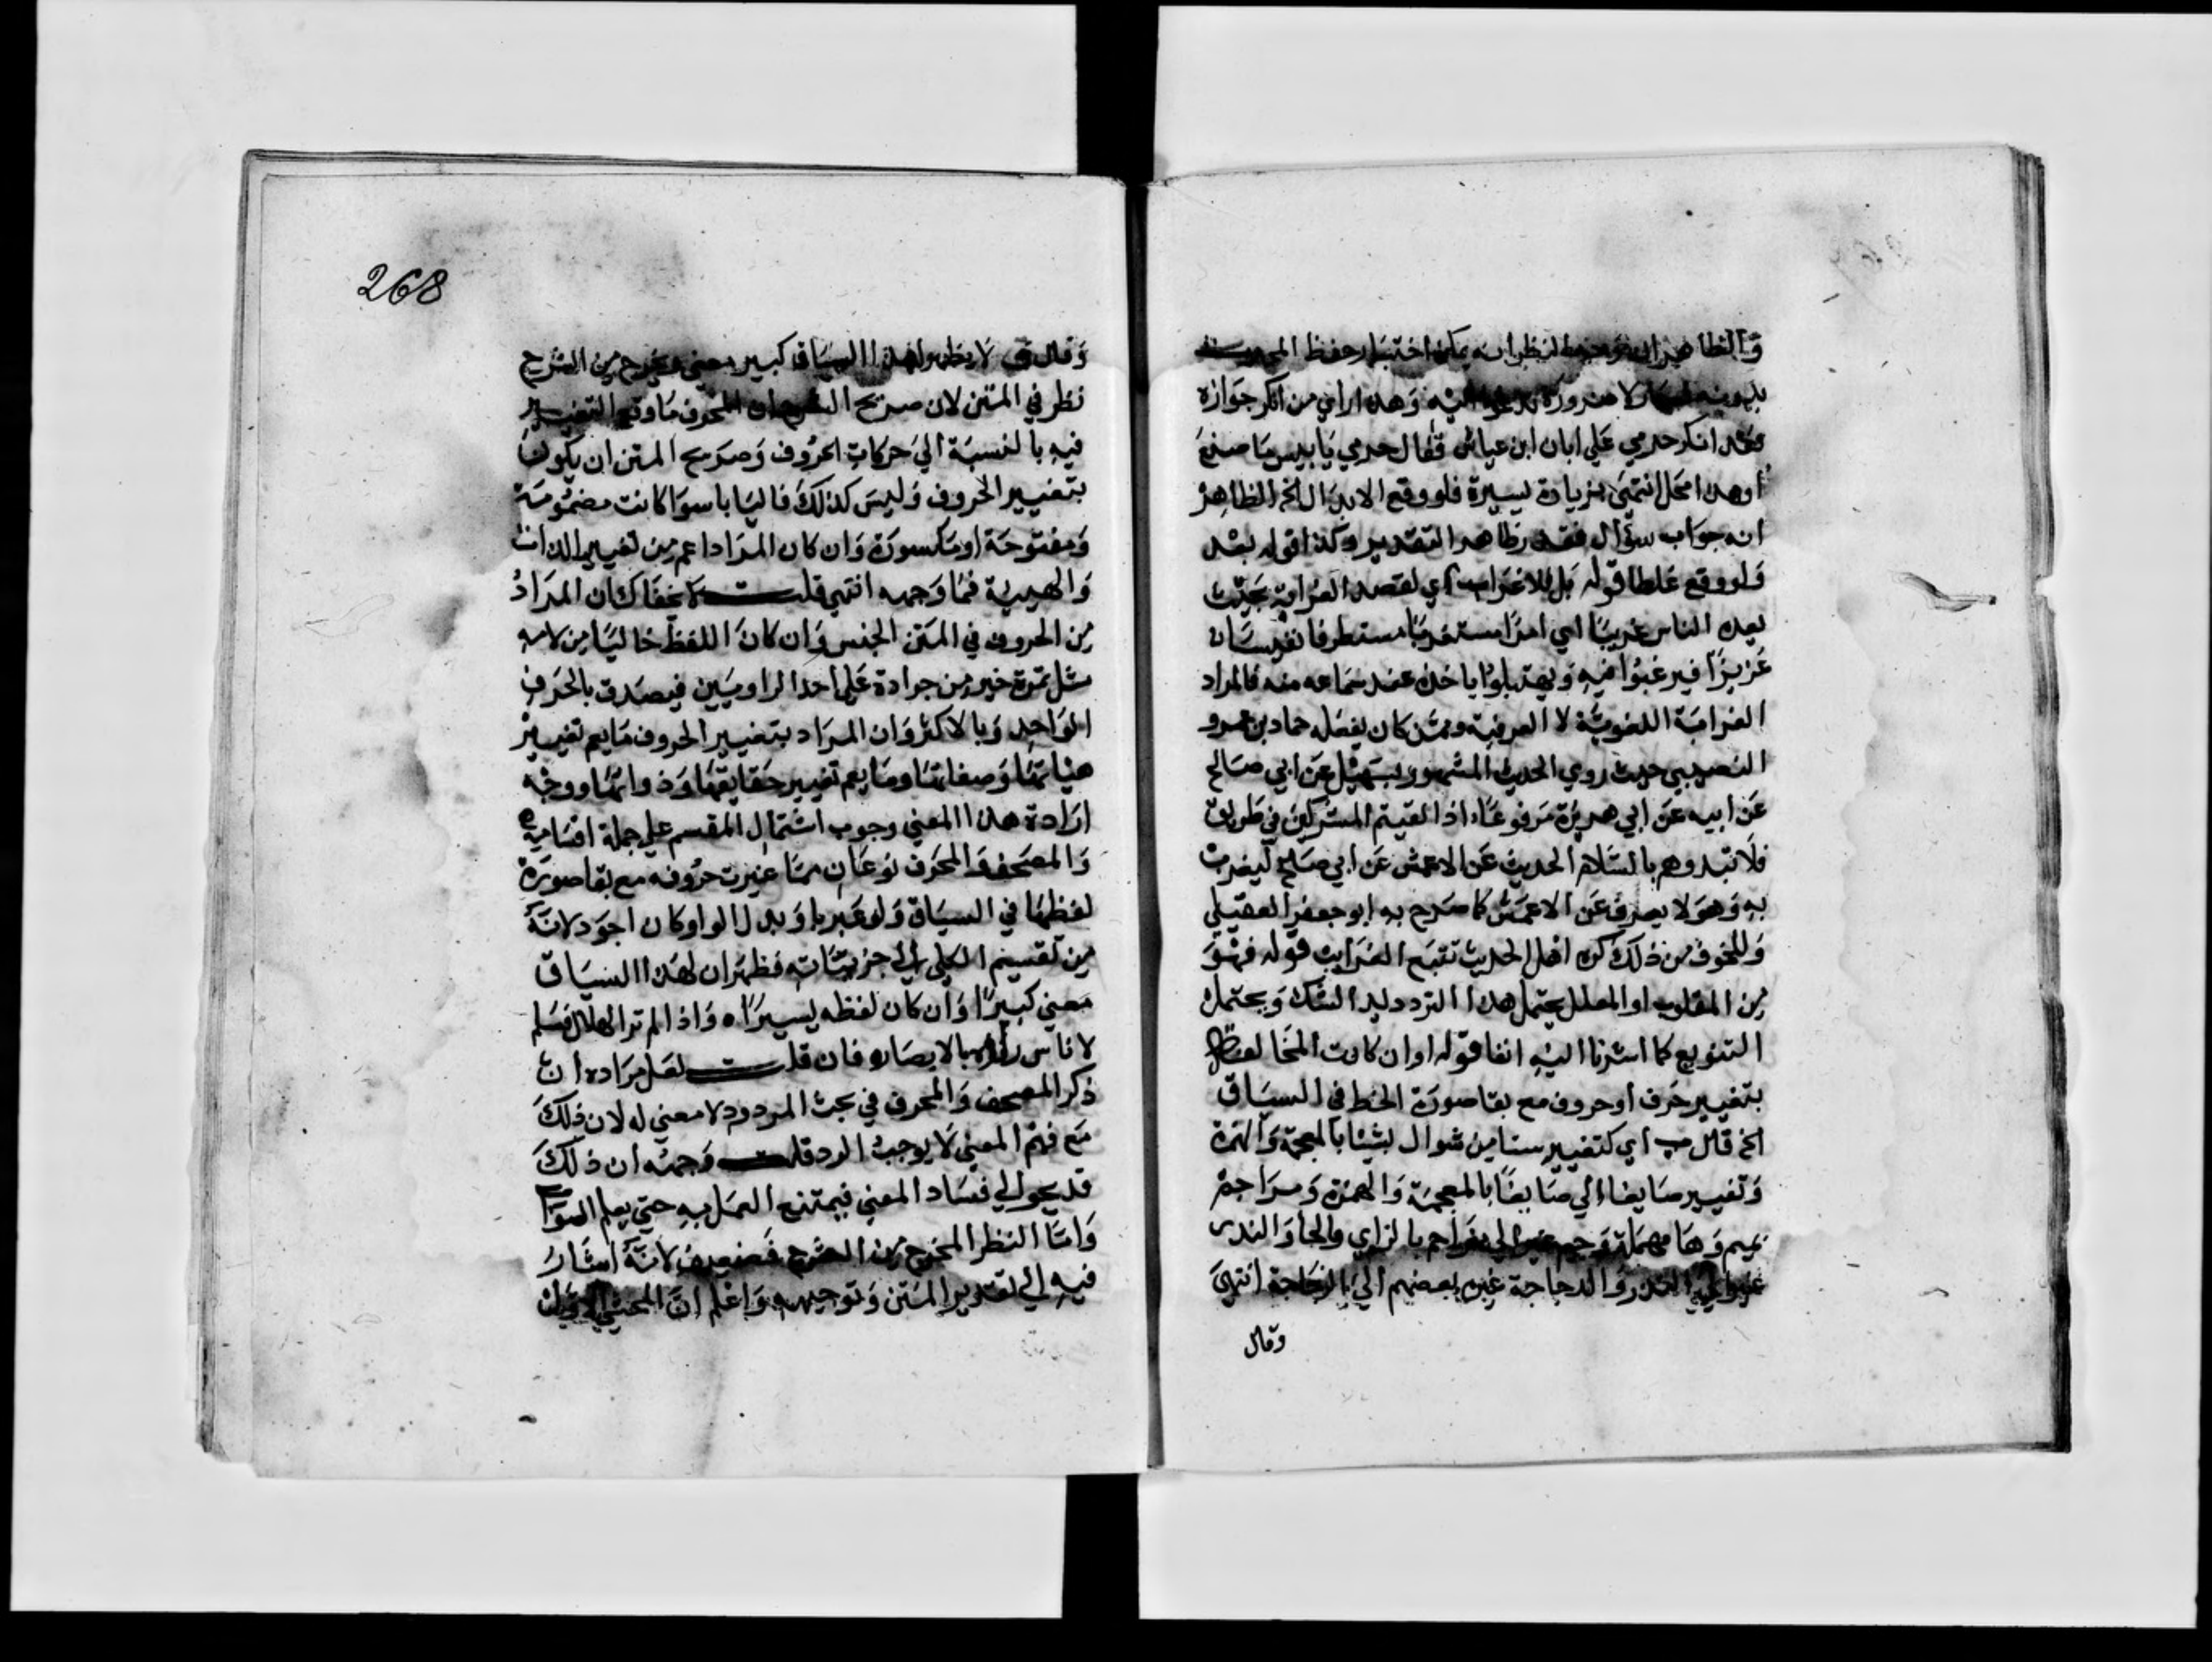 والظاهر ان لنظر انه يمكن اختبار حفظ
بدونه لا ضرورة اليه وهذا راي من انكر جوازه
وقد انكر حرمي علي ابان ابن عياش فقال حرمي يا بيس ما صنع
اوهذا محل انتهي بزيادة يسيرة فلو وقع الابدال الخ الظاهر
انه جواب سؤال التقدير وكذا قوله بعد
ولو وقع غلطا قوله بل للاغراب اي لقصد الغرابة بحيث
يعده الناس غريبا اي امرا مستغربا مستطرفا نفيسا
عزيزا فيرغبوا فيه ويقبلوا ياخذ عند سماعه منه فالمراد
الغرابة اللغوية لا العرفية وممن كان يفعله حماد بن عمرو
النصيبي حيث روي الحديث المشهور بسهيل عن ابي صالح
عن ابيه عن ابي هريرة مرفوعا اذا لقيتم المشركين في طريق
فلا تبدوهم بالسلام الحديث عن الاعمش عن ابي صالح ليغرب
به وهو لا يعرف عن الاعمش كما صرح به ابو جعفر العقيلي
وللخوف من ذلك كره اهل الحديث تتبع الغرايب قوله فهو
من المقلوب او المعلل يحتمل هذا الترديد الشك ويحتمل
التنويع كما اشرنا اليه انفا قوله او ان كانت المخالفة
بتغيير حرف او حروف مع بقا صورة الخط في السياق
الخ قال اي كتغيير ستا من شوال بشيئا بالمعجمة والهمزة
وتغيير صايغا الي ضايعا بالمعجمة والهمزة ومراجم
بميم وها مهملة وجيم الي مزاحم بالزاي والحا والنذر
الي والدجاجة غيره بعضهم الي بالزجاجة انتهي
وقال
268
وقال لا يظهر لهذا السياق كبير معني ويخرج من الشرح
نظر في المتن لان صريح الشرح ان المحرف ما وقع التغيير
فيه بالنسبة الي حركات الحروف وصريح المتن ان يكون
بتغيير الحروف وليس كذلك فاليا با سوا كانت مضمومة
ومفتوحة او مكسورة وان كان المراد اعم من تغيير الذات
والهيية فما وجهه انتهي قلت لا يخفاك ان المراد
من الحروف في المتن الجنس وان كان اللفظ خاليا من لامه
مثل تمرة خير من جرادة علي احد الراويين فيصدق بالحرف
الواحد وبالاكثر وان المراد بتغيير الحروف ما يعم تغيير
هيئاتها وصفاتها وما يعم تغيير حقايقها وذواتها ووجه
ارادة هذا المعني وجوب اشتمال المقسم علي جملة اقسامه
والمصحف والمحرف نوعان مما غيرت حروفه مع بقا صورة
لفظها في السياق ولو عبر باو بدل الواو كان اجود لانه
من تقسيم الكلي الي جزييّاته فظهر ان لهذا السياق
معني كبيرا وان كان لفظه يسيرا ه واذا لم تر الهلال فسلم
لاناس راوه بالابصار فان قلت لعل مراده ان
ذكر المصحف والمحرف في بحث المردود لا معني له لان ذلك
مع فهم المعني لا يوجب الرد قلت وجهه ان ذلك
قد يجر الي فساد المعني فيمتنع العمل به حتي يعلم الصواب
واما النظر المخرج من الشرح فضعيف لانه اشار
فيه الي تقدير المتن وتوجيهه واعلم ان الاول